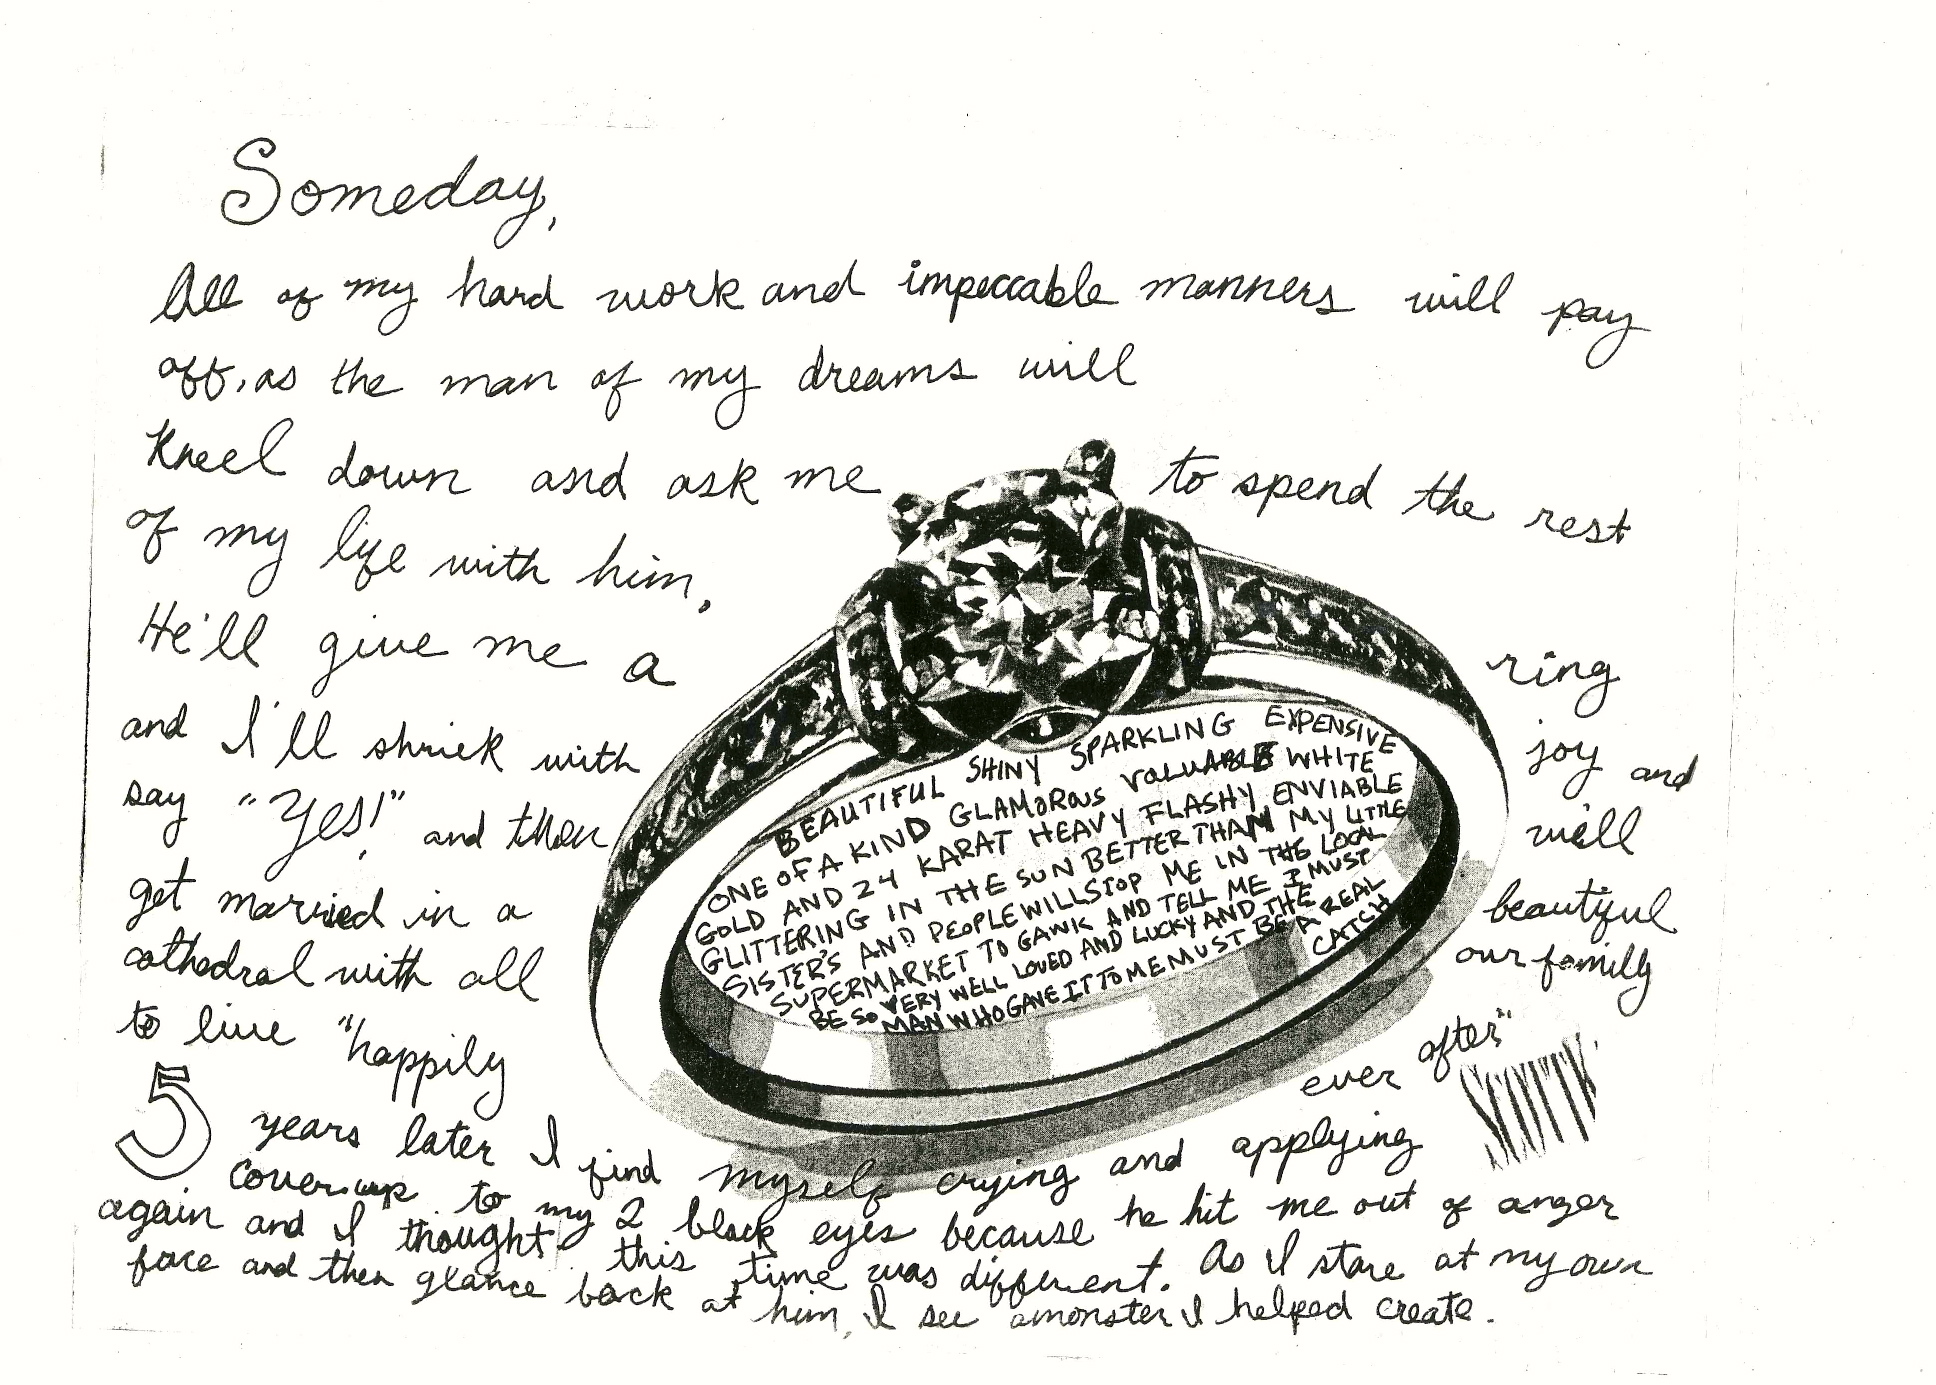 Someday,
All of my hard work and impeccable manners will pay
off, as the man of my dreams will
Kneel down and ask me to spend the rest
of my life with him.
He'll give me a ring
and I'll shriek with joy and
say "Yes!" and then will
get married in a beautiful
cathedral with all our family
to live "happily ever after"
BEAUTIFUL SHINY SPARKLING EXPENSIVE
ONE OF A KIND GLAMOROUS VALUABLE WHITE
GOLD AND 24 KARAT HEAVY FLASHY ENVIABLE
GLITTERING IN THE SUN BETTER THAN MY LITTLE
SISTER'S AND PEOPLE WILL STOP ME IN THE LOCAL
SUPERMARKET TO GAWK AND TELL ME I MUST
BE SO VERY WELL LOVED AND LUCKY AND THE
MAN WHO GAVE IT TO ME MUST BE A REAL
CATCH
5 years later I find myself crying and applying
coverup to my 2 black eyes because he hit me out of anger
again and I thought this time was different. As I stare at my own
face and then glance back at him, I see a monster I helped create.